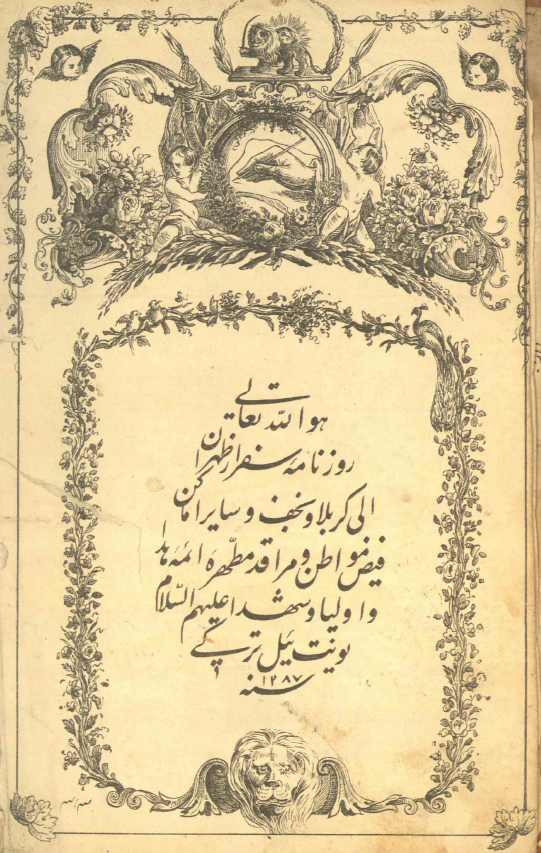 هو الله تعالی
روزنامهٔ سفر از طهران
الی کربلا و نجف و سایر اماکن
فیض مواطن و مراقد مطهره ائمه هدا
و اولیا و شهدا علیهم السّلام
یونت ئیل ترکی
سنه ۱۲۸۷